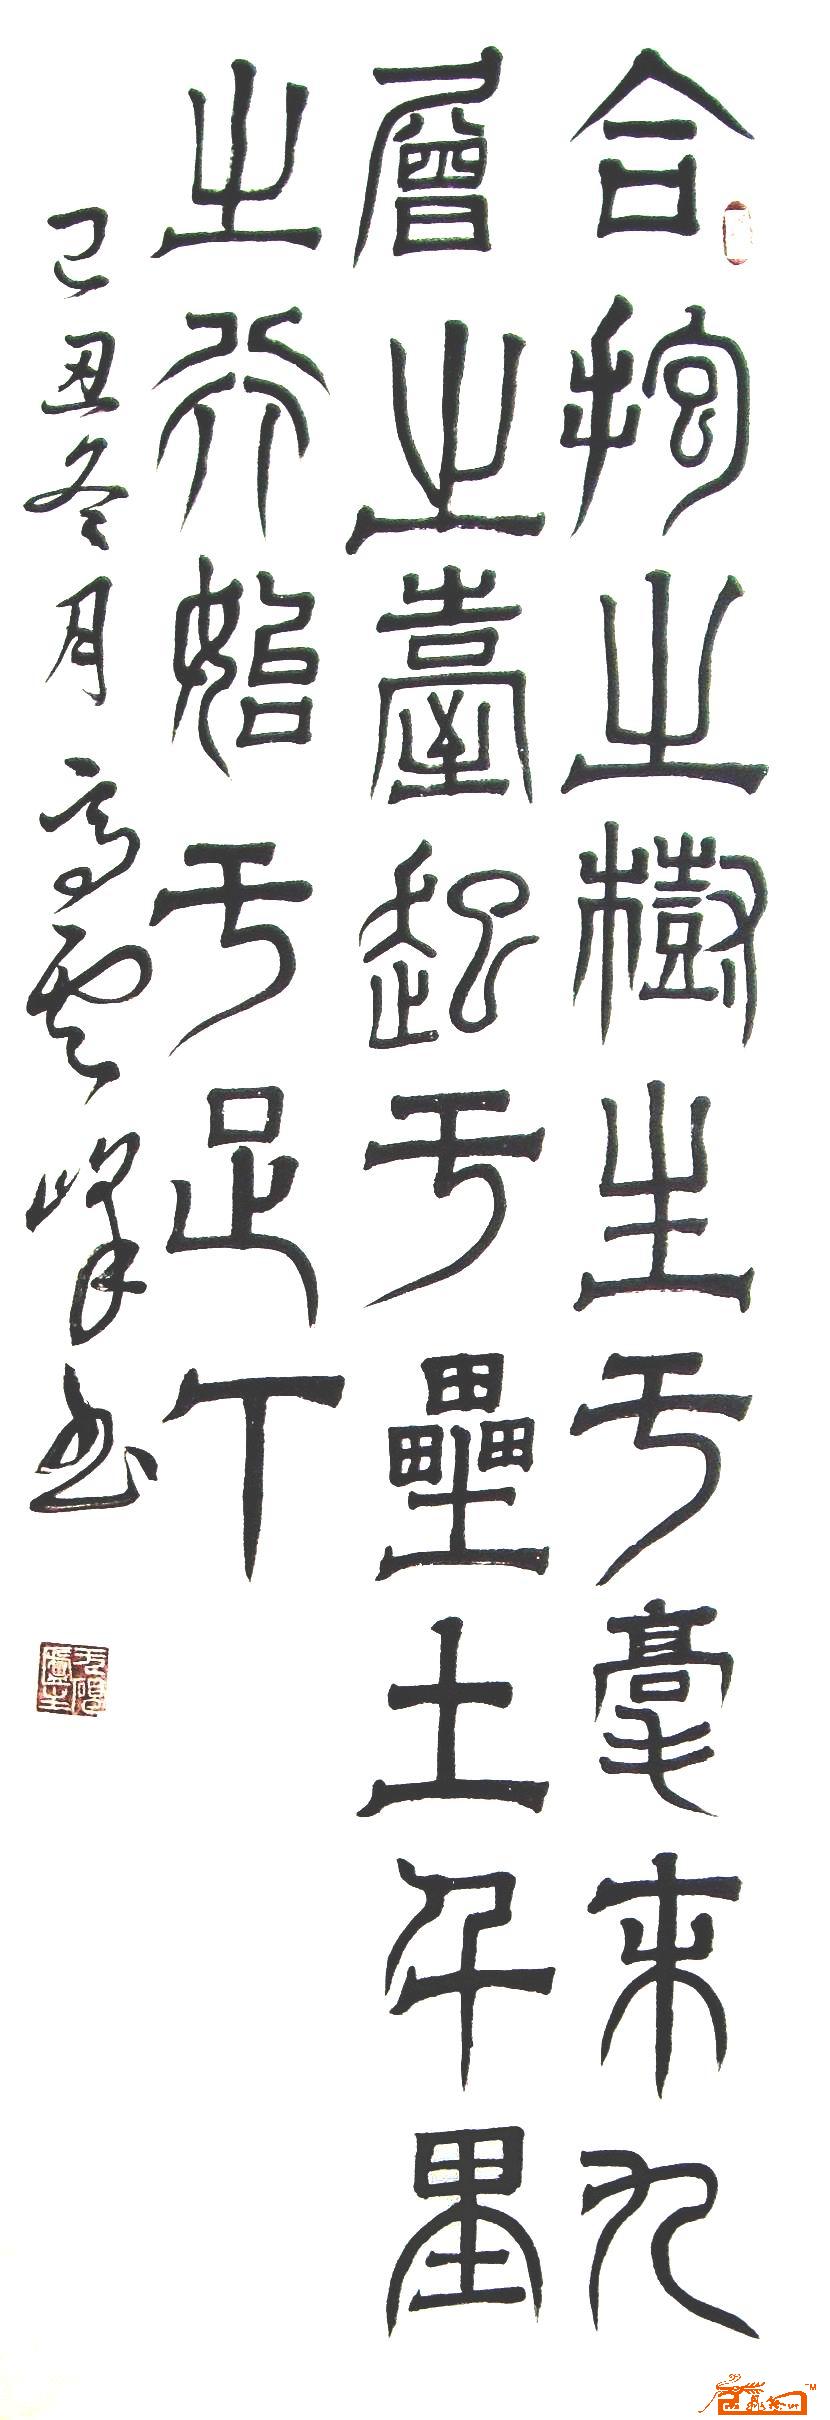 合抱之樹生于毫末九
層之臺起于壘土千里
之行始于足下
己丑冬月高雲峰书